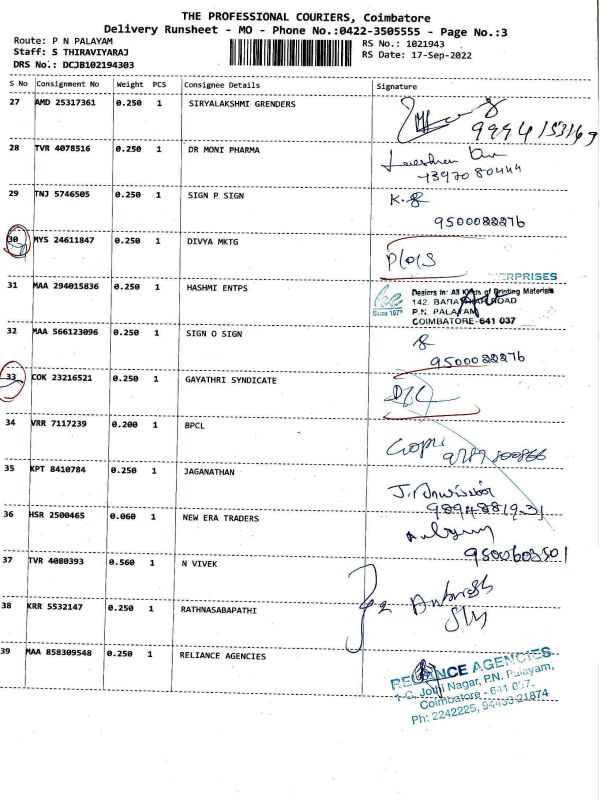 THE PROFESSIONAL COURIERS, Coimbatore
Delivery Runsheet - MO - Phone No.:0422-3505555 - Page No.:3
Route: P N PALAYAM
Staff: S THIRAVIYARAJ
DRS No.: DCJB102194303
RS No.: 1021943
RS Date: 17-Sep-2022
S No Consignment No Weight PCS Consignee Details Signature
27 AMD 25317361 0.250 1 SIRYALAKSHMI GRENDERS
28 TVR 4078516 0.250 1 DR MONI PHARMA
29 TNJ 5746505 0.250 1 SIGN P SIGN
9500022276
30 MYS 24611847 0.250 1 DIVYA MKTG
31 MAA 294015836 0.250 1 HASHMI ENTPS
ERPRISES
Since 1977
Dealers in: All Kinds of Printing Materials
142. ROAD
P.N. PALAYAM
COIMBATORE-641 037
32 MAA 566123096 0.250 1 SIGN O SIGN
9500022276
33 COK 23216521 0.250 1 GAYATHRI SYNDICATE
34 VRR 7117239 0.200 1 BPCL
Gopi
35 KPT 8410784 0.250 1 JAGANATHAN
36 HSR 2500465 0.060 1 NEW ERA TRADERS
37 TVR 4080393 0.560 1 N VIVEK
38 KRR 5532147 0.250 1 RATHNASABAPATHI
39 MAA 858309548 0.250 1 RELIANCE AGENCIES
RELIANCE AGENCIES
Jothi Nagar, P.N. Palayam,
Coimbatore - 641 037.
Ph: 2242225, 94430-21874